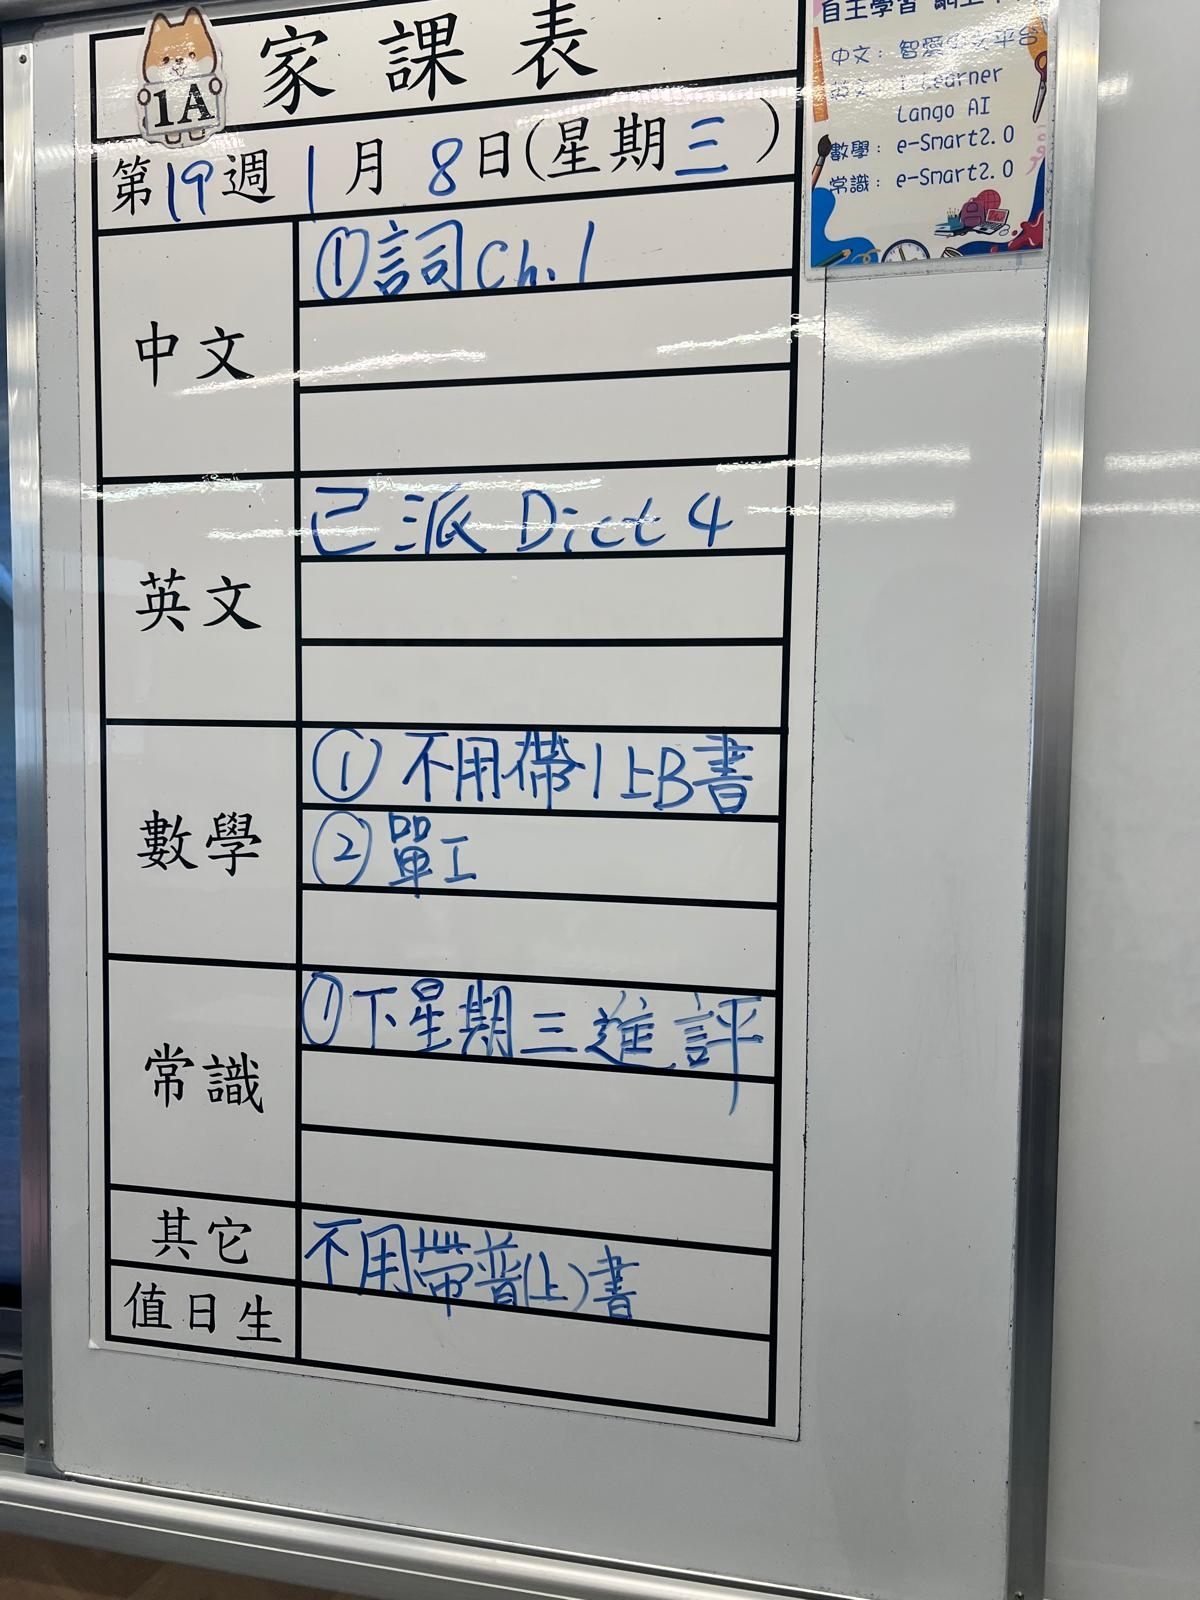 家課表
1A
第19週 1月 8日(星期三)
中文
①詞Ch.1
英文
已派 Dict 4
數學
①不用帶1上B書
②單工
常識
①下星期三進評
其它
不用帶普(上)書
值日生
自主學習
中文：智愛中文平台
英文：i-Learner
Lango AI
數學：e-Smart2.0
常識：e-Smart2.0